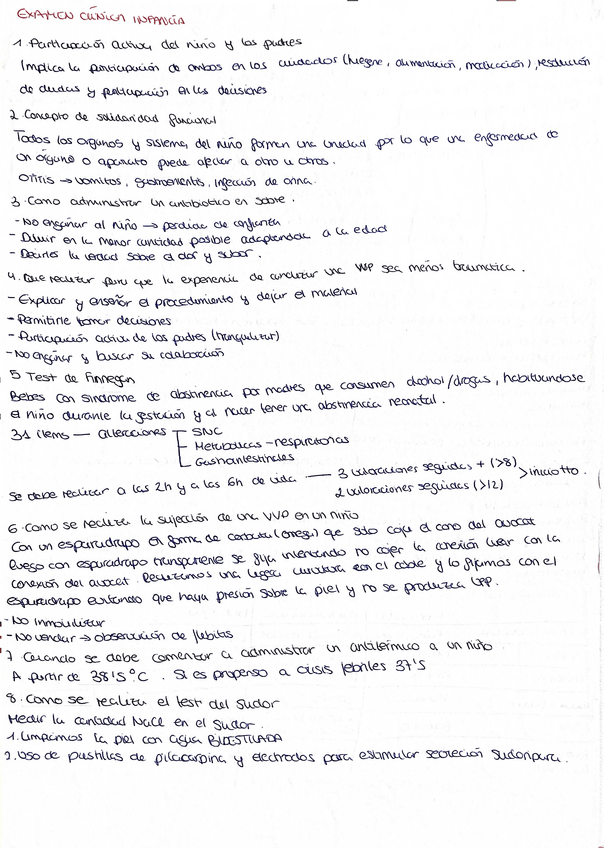 EXAMEN CLÍNICA INFANCIA
1. Participación activa del niño y los padres
Implica la participación de ambos en los cuidados (higiene, alimentación, medicación), resolución
de dudas y participación en las decisiones
2. Concepto de solidaridad funcional
Todos los órganos y sistema del niño forman una unidad por lo que una enfermedad de
un órgano o aparato puede afectar a otro u otros.
Otitis → vomitos, gastroenteritis, infección de orina.
3. Como administrar un antibiotico en sobre.
- No engañar al niño → perdida de confianza
- Diluir en la menor cantidad posible adaptandola a la edad
- Decirles la verdad sobre el olor y sabor.
4. Que realizar para que la experiencia de canalizar una VVP sea menos traumatica.
- Explicar y enseñar el procedimiento y dejar el material
- Permitirle tomar decisiones
- Participación activa de los padres (tranquilizar)
- No engañar y buscar su colaboración
5 Test de Finnegan
Bebes con sindrome de abstinencia por madres que consumen alcohol/drogas, habituandose
el niño durante la gestación y al nacer tener una abstinencia neonatal.
31 items — alteraciones SNC
Metabolicas - respiratorias
Gastrointestinales
Se debe realizar a las 2h y a las 6h de vida — 3 valoraciones seguidas + (>8)
2 valoraciones seguidas (>12) > inicio tto.
6. Como se realiza la sujección de una VVP en un niño
Con un esparadrapo en forma de corbata (omega) que solo coja el cono del avocat
luego con esparadrapo transparente se fija intentando no cojer la conexión luer con la
conexión del avocat. Realizamos una ligera curvatura con el cable y lo fijamos con el
esparadrapo evitando que haya presión sobre la piel y no se produzca UPP.
- No inmovilizar
- No vendar → observación de flebitis
7 Cuando se debe comenzar a administrar un antitérmico a un niño
A partir de 38'5°C. Si es propenso a crisis febriles 37'5
8. Como se realiza el test del sudor
Medir la cantidad NaCl en el sudor.
1. Limpiamos la piel con agua BIDESTILADA
2. Uso de pastillas de pilocarpina y electrodos para estimular secreción sudoripara.